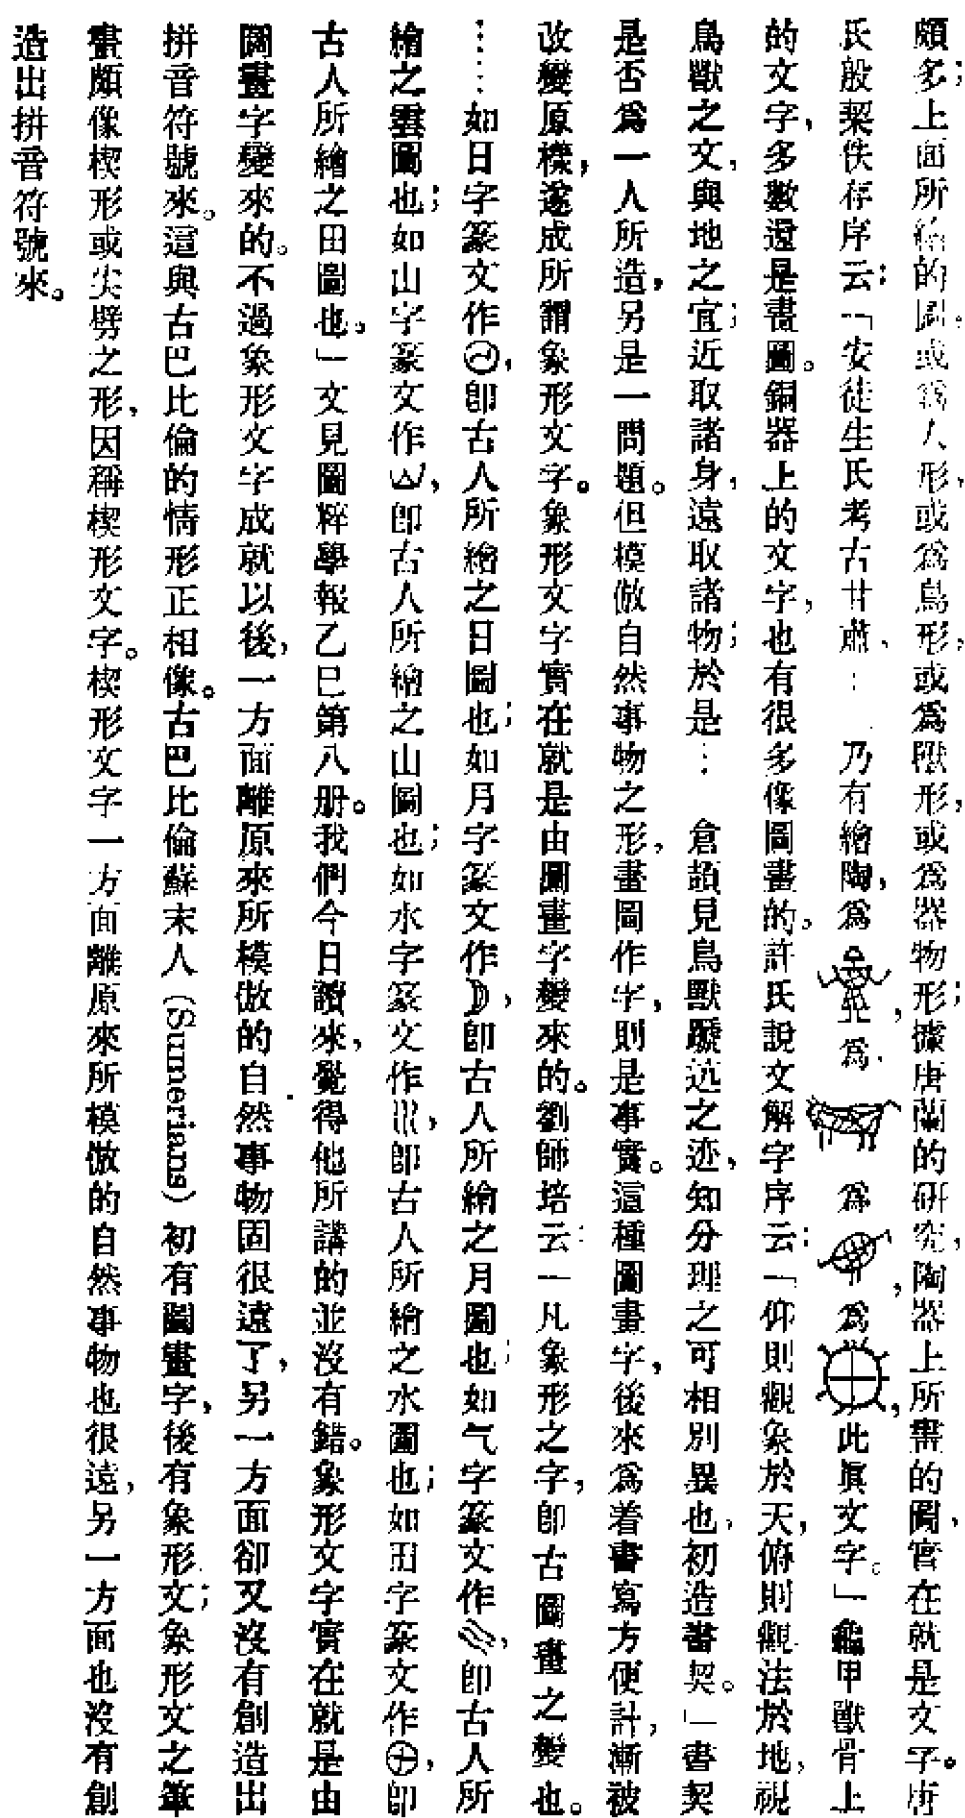 頗多；上面所繪的圖。或爲人形，或爲鳥形，或爲獸形，或爲器物形；據唐蘭的研究，陶器上所畫的圖，實在就是文字。唐
氏殷契佚存序云：「安徒生氏考古甘肅，……乃有繪陶，爲，爲，爲，爲，此眞文字。」龜甲獸骨上
的文字，多數還是畫圖。銅器上的文字，也有很多像圖畫的，許氏說文解字序云：「仰則觀象於天，俯則觀法於地，視
鳥獸之文，與地之宜；近取諸身，遠取諸物；於是……倉頡見鳥獸蹏迒之迹，知分理之可相別異也，初造書契。」書契
是否爲一人所造，另是一問題。但模倣自然事物之形，畫圖作字，則是事實。這種圖畫字，後來爲着書寫方便計，漸被
改變原樣，遂成所謂象形文字。象形文字實在就是由圖畫字變來的。劉師培云：「凡象形之字，卽古圖畫之變也。
……如日字篆文作，卽古人所繪之日圖也；如月字篆文作，卽古人所繪之月圖也；如气字篆文作，卽古人所
繪之雲圖也；如山字篆文作，卽古人所繪之山圖也；如水字篆文作，卽古人所繪之水圖也；如田字篆文作，卽
古人所繪之田圖也。」文見國粹學報乙巳第八册。我們今日讀來，覺得他所講的並沒有錯。象形文字實在就是由
圖畫字變來的。不過象形文字成就以後，一方面離原來所模倣的自然事物固很遠了，另一方面卻又沒有創造出
拼音符號來。這與古巴比倫的情形正相像。古巴比倫蘇末人（Sumerians）初有圖畫字，後有象形文；象形文之筆
畫頗像楔形或尖劈之形，因稱楔形文字。楔形文字一方面離原來所模倣的自然事物也很遠，另一方面也沒有創
造出拼音符號來。